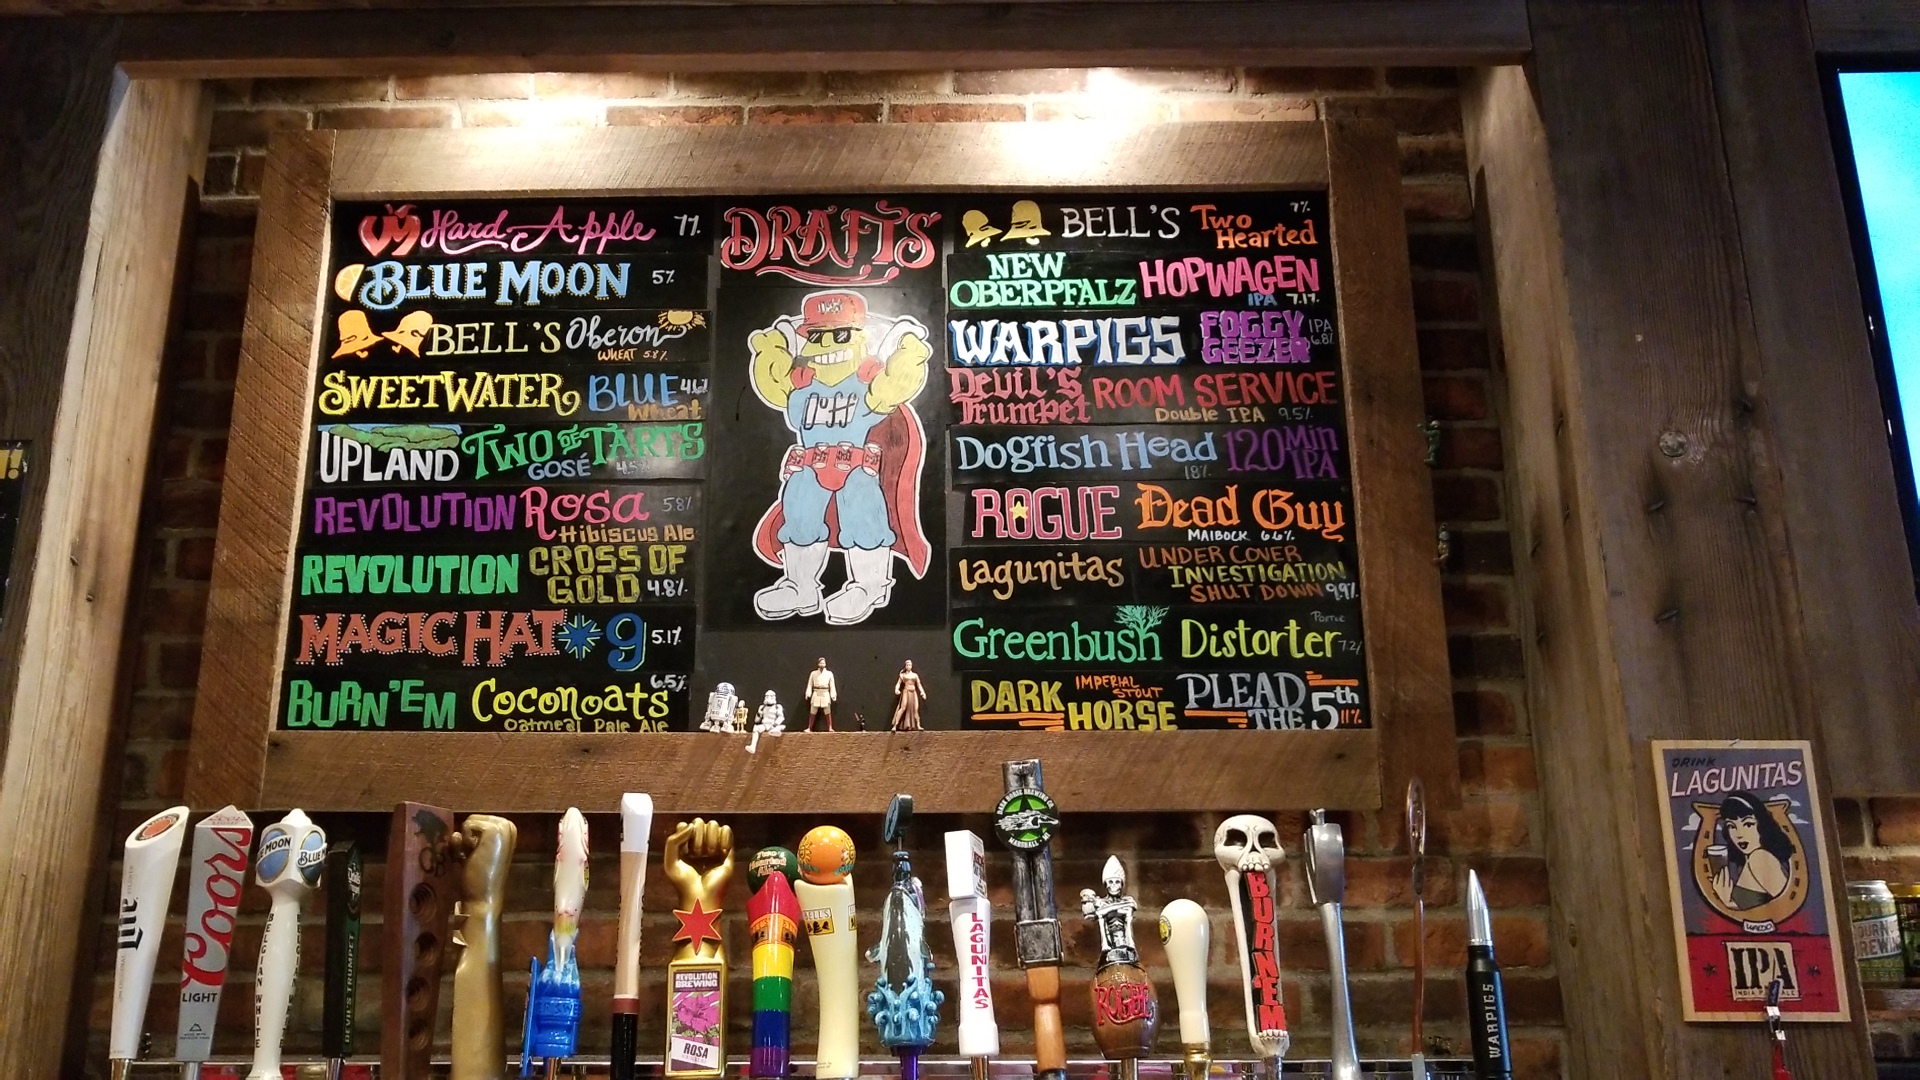 DRAFTS
Hard Apple 7%
BLUE MOON 5%
BELL'S Oberon
WHEAT 5.8%
SWEETWATER BLUE 4.6%
Wheat
UPLAND TWO OF TARTS
GOSÉ 4.5%
REVOLUTION Rosa 5.8%
Hibiscus Ale
REVOLUTION CROSS OF
GOLD 4.8%
MAGIC HAT 9 5.1%
BURN'EM Coconoats 6.5%
Oatmeal Pale Ale
Duff
BELL'S Two Hearted 7%
NEW
OBERPFALZ HOPWAGEN
IPA 7.1%
WARPIGS FOGGY
GEEZER IPA 6.8%
Devil's
Trumpet ROOM SERVICE
Double IPA 9.5%
Dogfish Head 120 Min
IPA
18%
ROGUE Dead Guy
MAIBOCK 6.6%
lagunitas UNDER COVER
INVESTIGATION
SHUT DOWN 9.9%
Greenbush Distorter
Porter 7.2%
DARK
HORSE
IMPERIAL
STOUT
PLEAD
THE 5th
11%
Lite
Coors
LIGHT
BLUE MOON
BELGIAN WHITE
DEVIL'S TRUMPET
REVOLUTION
BREWING
ROSA
Two
Hearted
Ale
BELL'S
BELL'S
LAGUNITAS
DARK HORSE BREWING CO.
MARSHALL, MI
ROGUE
BURN'EM
WARPIGS
DRINK
LAGUNITAS
IPA